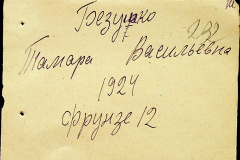 Безушко
232
Тамара Васильевна
1924
Фрунзе 12